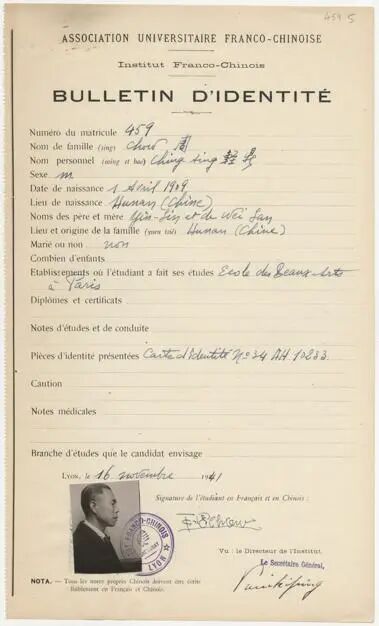 459 5
ASSOCIATION UNIVERSITAIRE FRANCO-CHINOISE
Institut Franco-Chinois
BULLETIN D'IDENTITÉ
Numéro du matricule 459
Nom de famille (sing) Chow 周
Nom personnel (ming et hao) Ching sing
Sexe m
Date de naissance 1 Avril 1909
Lieu de naissance Hunan (Chine)
Noms des père et mère et de Wei San
Lieu et origine de la famille Hunan (Chine)
Marié ou non non
Combien d'enfants
Etablissements où l'étudiant a fait ses études Ecole des Beaux-Arts
à Paris
Diplômes et certificats
Notes d'études et de conduite
Pièces d'identité présentées Carte d'identité No 34 AH 10233
Caution
Notes médicales
Branche d'études que le candidat envisage
Lyon, le 16 novembre 1941
Signature de l'étudiant en Français et en Chinois :
Chow
FRANCO-CHINOIS
LYON
Vu : le Directeur de l'Institut
Le Secrétaire Général,
NOTA. — Tous les noms propres Chinois doivent être écrits
lisiblement en Français et Chinois.